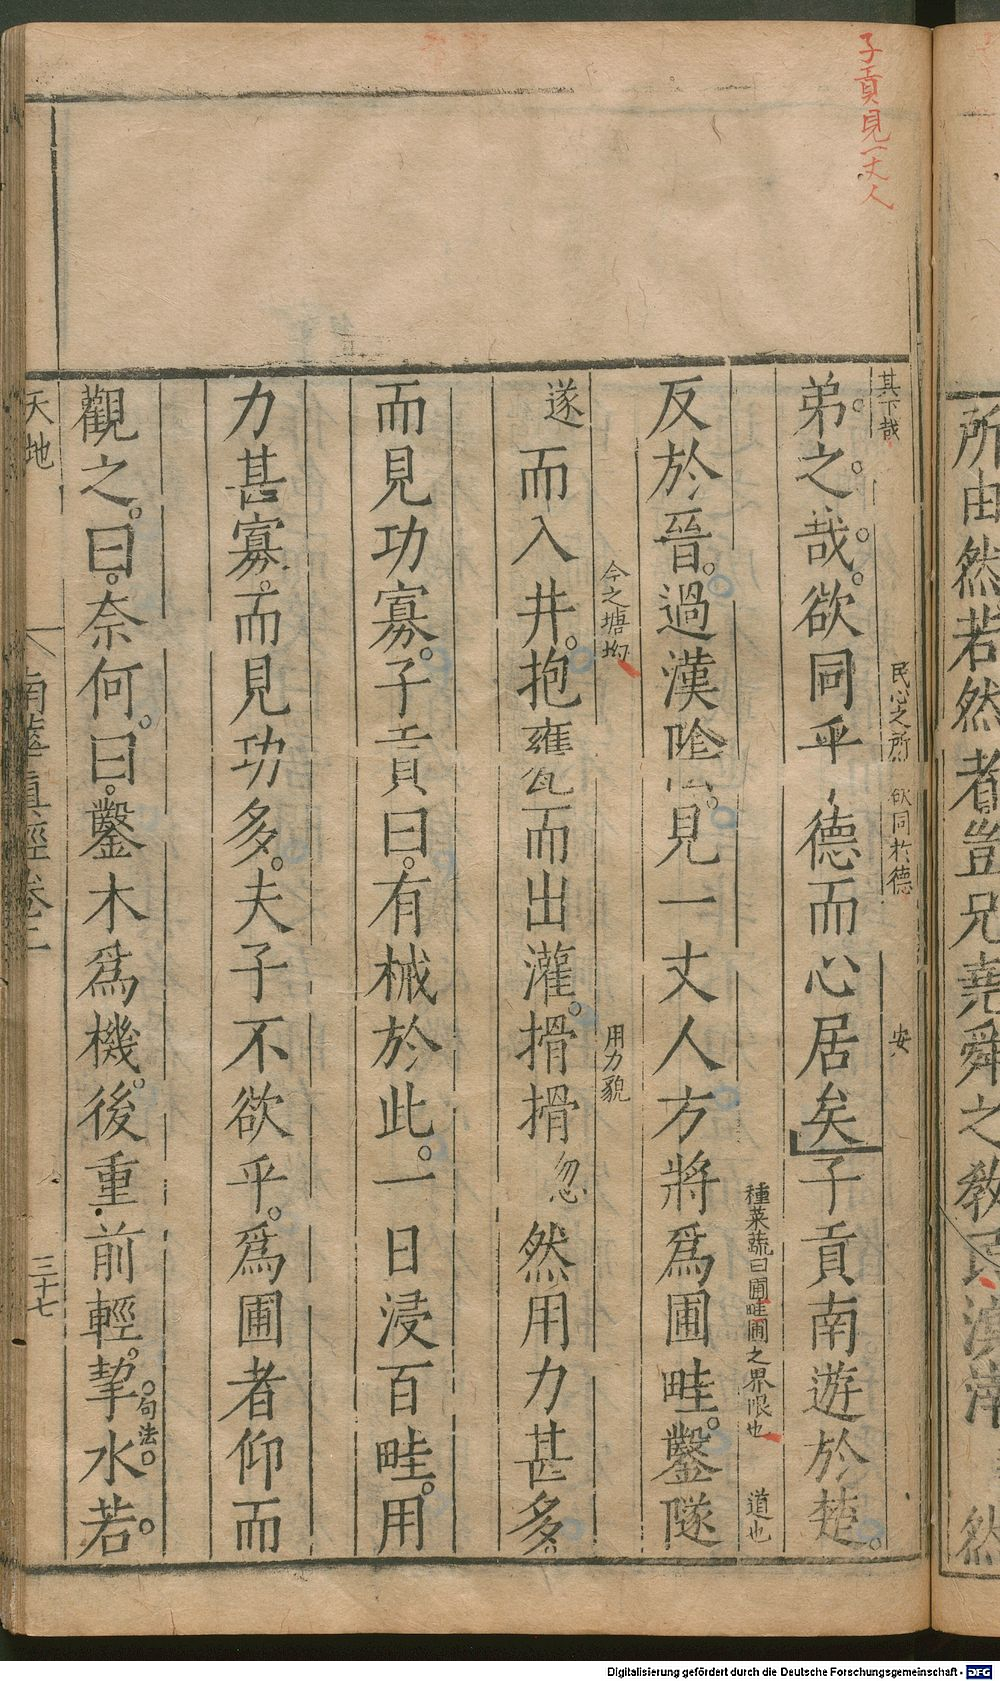 所由然若然者豈兄堯舜之教民溟涬然
子貢見一丈人
其下哉
民心之所欲同於德
安
弟之。哉。欲同乎德而心居矣子貢南遊於楚。
種菜蔬曰圃畦圃之界限也
道也
反於晉。過漢陰。見一丈人方將為圃畦。鑿隧
今之塘坳
用力貌
遂而入井。抱甕而出灌。搰搰忽然用力甚多。
而見功寡。子貢曰。有械於此。一日浸百畦。用
力甚寡。而見功多。夫子不欲乎。為圃者仰而
句法。
觀之。曰。奈何。曰。鑿木為機。後重前輕。挈水若。
天地
南華真經卷三
三十七
Digitalisierung gefördert durch die Deutsche Forschungsgemeinschaft - DFG